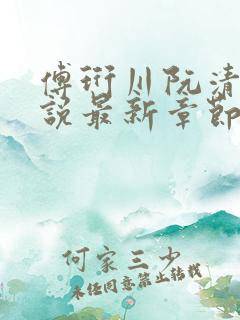 傅衍川阮清
说最新章节
何家三少
未经同意禁止转载